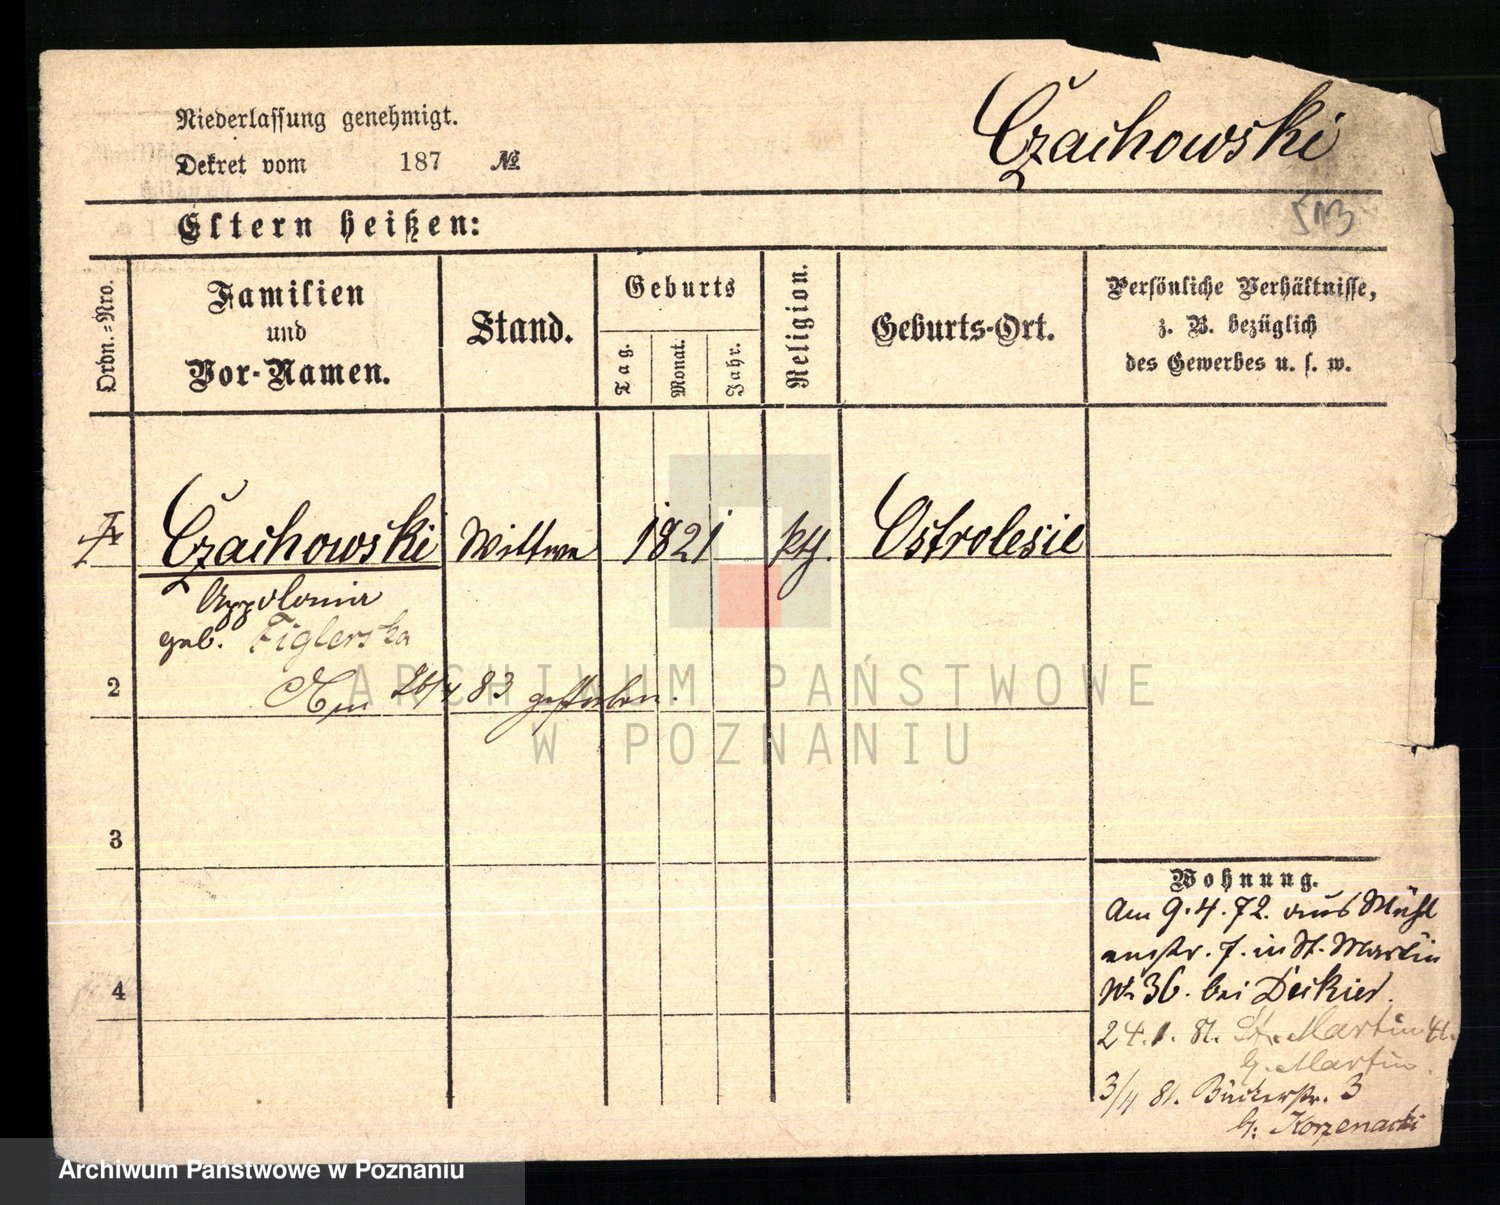 Niederlassung genehmigt.
Dekret vom 187 №
Czachowski
513
Eltern heißen:
Ordn.-Nro.
Familien
und
Vor-Namen.
Stand.
Geburts
Tag.
Monat.
Jahr.
Religion.
Geburts-Ort.
Persönliche Verhältnisse,
z. B. bezüglich
des Gewerbes u. s. w.
Czachowski Wittwe 1821 kth. Ostrolesie
Appolonia
geb. Figlerska
2 Am 26/4 83 gestorben.
3
4
Wohnung.
Am 9.4.72. aus Mühl
enstr. 7. in St. Martin
№ 36. bei Deikier.
24.1.81. St. Martin 41.
b. Martin.
3/4 81. Bäckerstr. 3
b: Korzenacki
ARCHIWUM PAŃSTWOWE
W POZNANIU
Archiwum Państwowe w Poznaniu